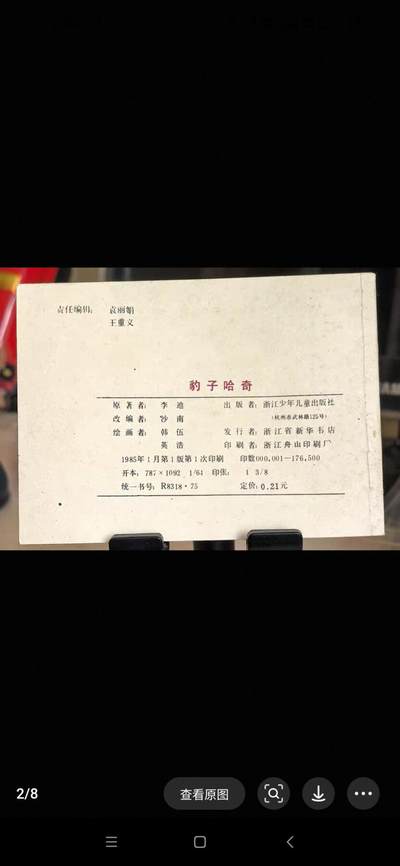 责任编辑： 袁丽娟
王重义
豹子哈奇
原著者： 李迪 出版者：浙江少年儿童出版社
改编者： 沙南 （杭州市武林路125号）
绘画者： 韩伍 发行者：浙江省新华书店
英浩 印刷者：浙江舟山印刷厂
1985年1月第1版第1次印刷 印数000,001—176,500
开本：787×1092 1/64 印张： 1 3/8
统一书号：R8318·75 定价：0.21元
2/8 查看原图